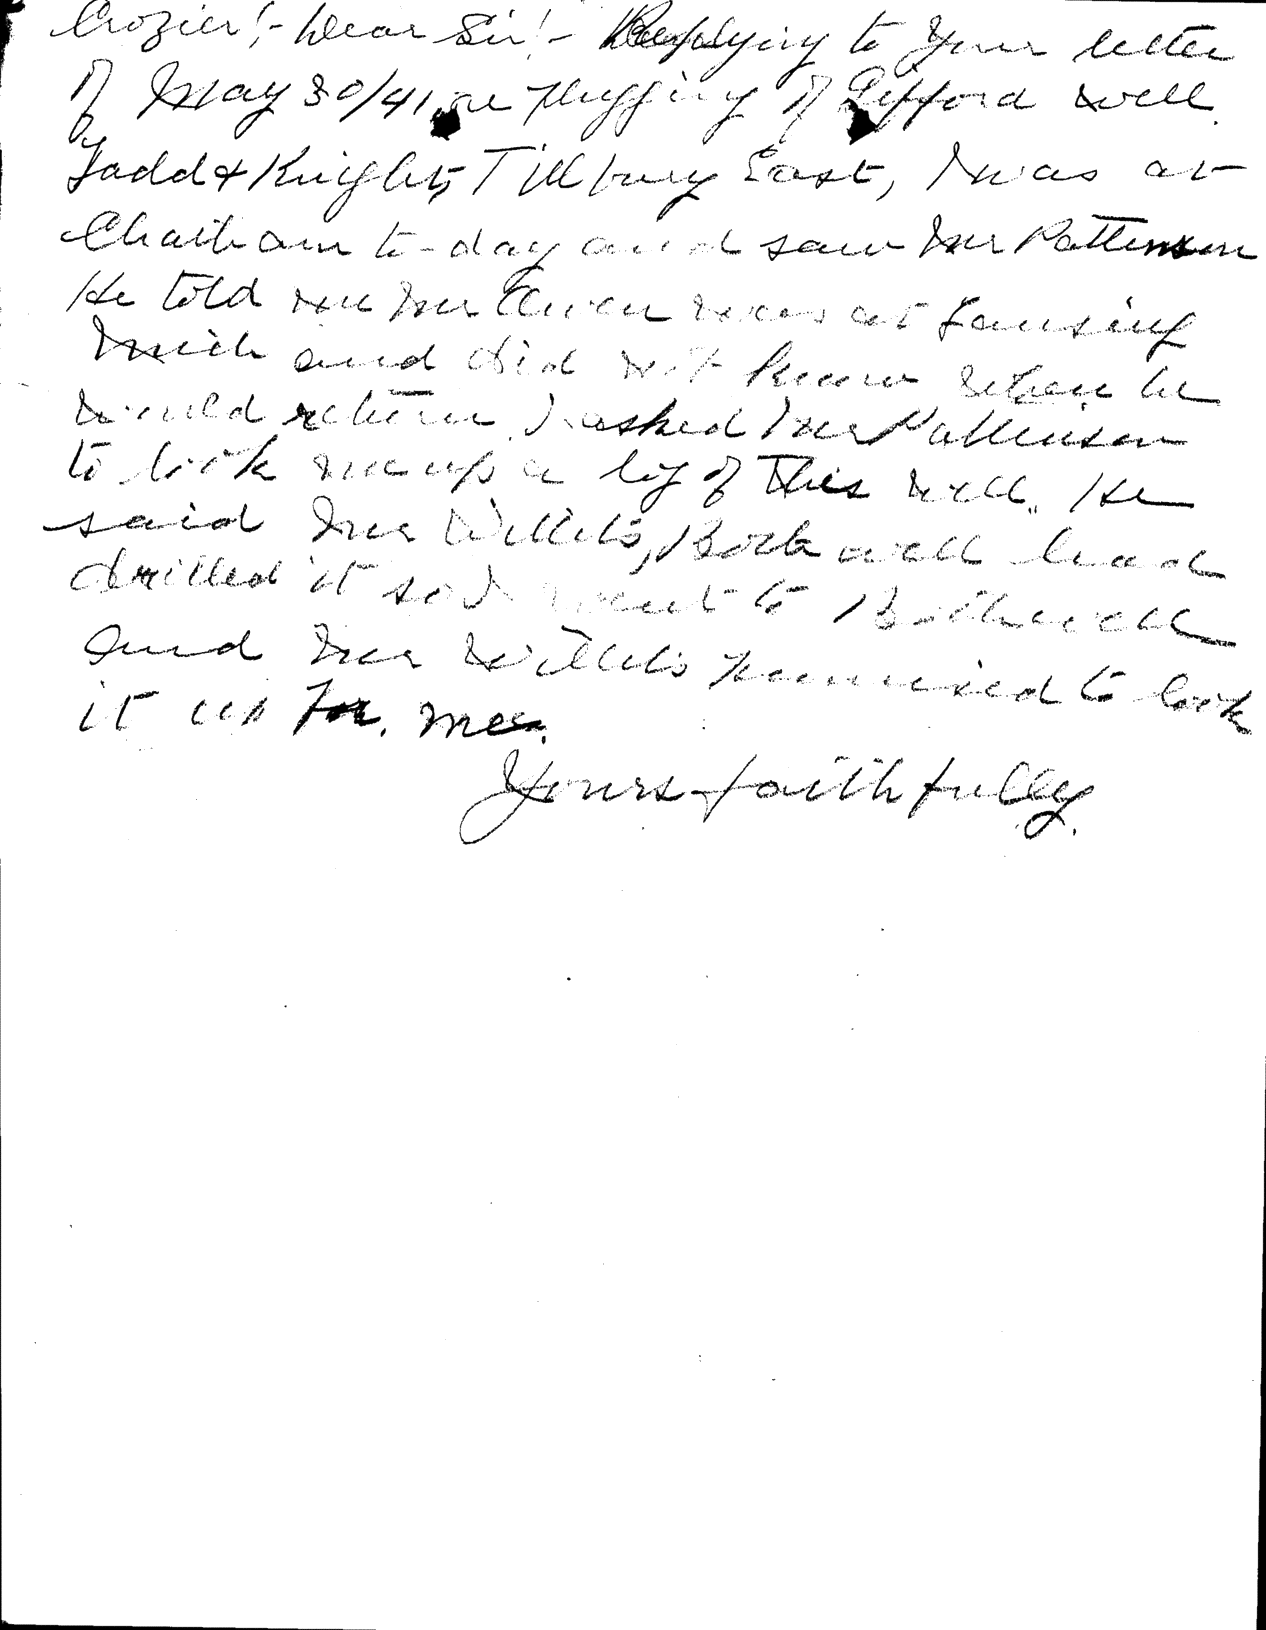 Crozier! - Dear Sir! - Replying to your letter
of May 30/41, re plugging of Gifford well
Ladd & Knight, Tilbury East, I was at
Chatham to-day and saw Mr Pattinson
He told me Mr Owen was at Lansing
Mich and did not know when he
would return I asked Mr Pattinson
to look me up a log of this well. He
said Mr Willits, Bothwell had
drilled it so I went to Bothwell
and Mr Willits promised to look
it up for me.
Yours faithfully.